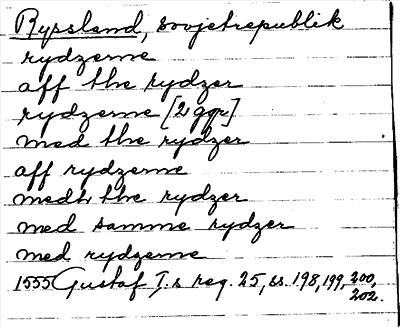 Ryssland, Sovjetrepublik
rydzerne
aff the rydzer
rydzerne [2 ggr]
mad the rydzer
aff rydzerne
medh the rydzer
med samme rydzer
med rydzerne
1555 Gustaf I.s reg. 25, ss. 198, 199, 200,
202.